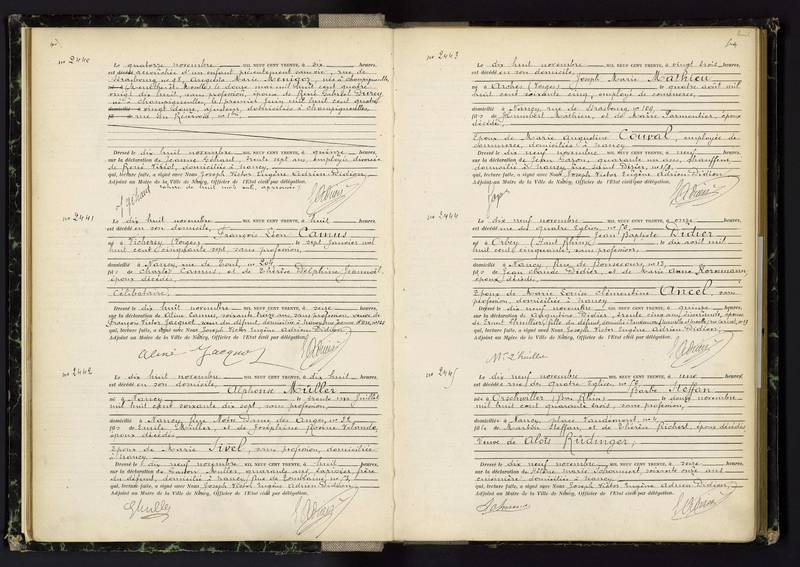 nº 2440
Le quatorze novembre MIL NEUF CENT TRENTE, à dix heures,
est décédé accouchée d'un enfant présentement sans vie, rue de
Strasbourg nº Augusta Marie Menigoz, née à Champigneulles
le douze mai mil huit cent quatre
vingt dix huit, sans profession, épouse de René Gabriel Durey
né à Champigneulles, le premier juin mil huit cent quatre
vingt domiciliés à Champigneulles,
rue du Réservoir, nº
Dressé le dix huit novembre, MIL NEUF CENT TRENTE, à quinze heures,
sur la déclaration de Jeanne Gehard, trente sept ans, employée
de René Viriot, domiciliée à Nancy
qui, lecture faite, a signé avec Nous Joseph Victor Eugène Adrien Didion,
Adjoint au Maire de la Ville de Nancy, Officier de l'Etat civil par délégation.
nº 2441
Le dix huit novembre MIL NEUF CENT TRENTE, à huit heures,
est décédé en son domicile, François Léon Camus
né à Vicherey (Vosges) le sept janvier mil
huit cent cinquante sept, sans profession,
domicilié à Nancy, rue de Toul, nº
fils de Charles Camus, et de Thérèse Delphine Jeannot,
époux décédés.
Célibataire.
Dressé le dix huit novembre, MIL NEUF CENT TRENTE, à seize heures,
sur la déclaration de Aline Camus, soixante treize ans, sans profession, veuve de
François Victor Jacquot, sœur du défunt, domiciliée à Nancy
qui, lecture faite, a signé avec Nous Joseph Victor Eugène Adrien Didion,
Adjoint au Maire de la Ville de Nancy, Officier de l'Etat civil par délégation.
nº 2442
Le dix huit novembre MIL NEUF CENT TRENTE, à dix huit heures,
est décédé en son domicile,
Alphonse Müller
né à Nancy le trente un juillet
mil huit cent soixante dix sept, sans profession,
domicilié à Nancy, Rue Notre Dame des Anges, nº
fils de Emile Müller, et de Joséphine
époux décédés
Epoux de Marie Sivel, sans profession, domiciliée
à Nancy.
Dressé le dix neuf novembre, MIL NEUF CENT TRENTE, à huit heures,
sur la déclaration de Gaston Müller, quarante ans, tapissier, frère
du défunt, domicilié à Nancy, Rue de
qui, lecture faite, a signé avec Nous Joseph Victor Eugène Adrien Didion,
Adjoint au Maire de la Ville de Nancy, Officier de l'Etat civil par délégation.
nº 2443
Le dix huit novembre MIL NEUF CENT TRENTE, à vingt trois heures,
est décédé en son domicile,
Joseph Marie Mathieu
né à Arches (Vosges) le quatre août mil
huit cent soixante cinq, employé de commerce,
domicilié à Nancy, rue de Strasbourg, nº 100,
fils de Humbert Mathieu, et de Marie Parmentier, époux
décédés
Epoux de Marie Augustine Couval, employée de
commerce, domiciliée à Nancy.
Dressé le dix neuf novembre, MIL NEUF CENT TRENTE, à neuf heures,
sur la déclaration de Jean quarante un ans, chauffeur,
domicilié à Nancy, rue Saint Dizier, nº
qui, lecture faite, a signé avec Nous Joseph Victor Eugène Adrien Didion,
Adjoint au Maire de la Ville de Nancy, Officier de l'Etat civil par délégation.
nº 2444
Le dix neuf novembre MIL NEUF CENT TRENTE, à onze heures,
est décédé rue des quatre Eglises, nº
Jean Baptiste Didier
né à Orbey (Haut Rhin) le dix août mil
huit cent cinquante, sans profession,
domicilié à Nancy, Rue de Bonsecours, nº 13,
fils de Jean Claude Didier, et de Marie Anne
époux décédés.
Epoux de Maria Clémentine Ancel, sans
profession, domiciliée à Nancy.
Dressé le dix neuf novembre, MIL NEUF CENT TRENTE, à quinze heures,
sur la déclaration de Augustine Didier, trente cinq ans, épouse
de Ernest Lhuillier, fille du défunt,
qui, lecture faite, a signé avec Nous Joseph Victor Eugène Adrien Didion,
Adjoint au Maire de la Ville de Nancy, Officier de l'Etat civil par délégation.
nº 2445
Le dix neuf novembre MIL NEUF CENT TRENTE, à une heures,
est décédée rue des quatre Eglises, nº
Barbe Steffan
née à Arschwiller (Bas Rhin) le douze novembre
mil huit cent quarante trois, sans profession,
domiciliée à Nancy, place
fille de Martin Steffan, et de Thérèse Richert, époux décédés
Veuve de Aloïs Rindinger,
Dressé le dix neuf novembre, MIL NEUF CENT TRENTE, à seize heures,
sur la déclaration de soixante onze ans,
domiciliée à Nancy
qui, lecture faite, a signé avec Nous Joseph Victor Eugène Adrien Didion,
Adjoint au Maire de la Ville de Nancy, Officier de l'Etat civil par délégation.